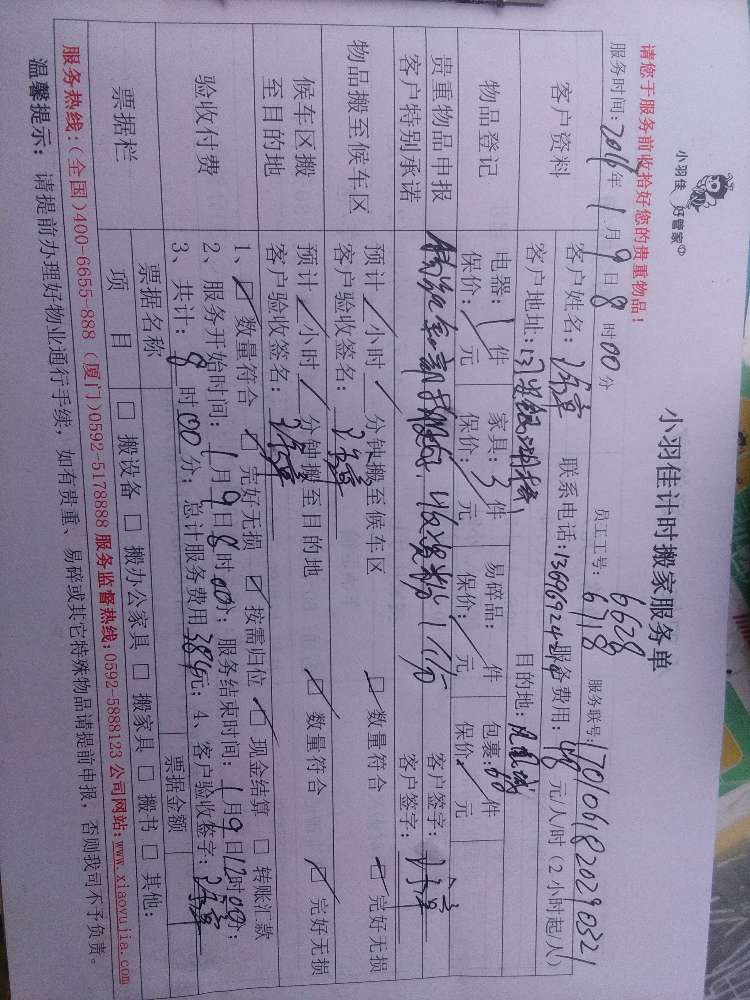 小羽佳 好管家
小羽佳计时搬家服务单
请您于服务前收拾好您的贵重物品!
员工工号: 6628 6718
服务联号: 1701061820290321
服务时间: 2016年 1月 9日 8时 00分
客户资料
客户姓名:
联系电话:
服务费用: 元/人/时(2小时起/人)
客户地址:
目的地: 凤凰城
物品登记
电器: 件 家具: 3件 易碎品: 件 包裹: 件
保价: 元 保价: 元 保价: 元 保价: 元
贵重物品申报
客户特别承诺
客户签字:
客户签字:
物品搬至候车区
预计 小时 分钟搬至候车区 数量符合 完好无损
客户验收签名:
候车区搬
至目的地
预计 小时 分钟搬至目的地 数量符合 完好无损
客户验收签名:
验收付费
1、 数量符合 完好无损 按需归位 现金结算 转账汇款
2、服务开始时间: 1月9日8时00分; 服务结束时间: 1月9日12时00分;
3、共计: 8时00分; 总计服务费用384元; 4、客户验收签字:
票据栏
票据名称 票据金额
项 目 搬设备 搬办公家具 搬家具 搬书 其他:
服务热线:(全国)400-6655-888 (厦门)0592-5178888 服务监督热线:0592-5888123 公司网站:www.xiaoyujia.com
温馨提示: 请提前办理好物业通行手续, 如有贵重、易碎或其它特殊物品请提前申报, 否则我司不予负责。